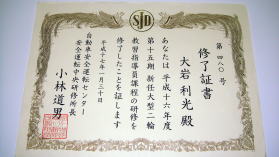 SJD
第四八〇号
修了証書
大岩利光殿
あなたは平成十六年度
第十五期新任大型二輪
教習指導員課程の研修を
修了したことを証します
平成十七年一月三十日
自動車安全運転センター
安全運転中央研修所長
小林道男